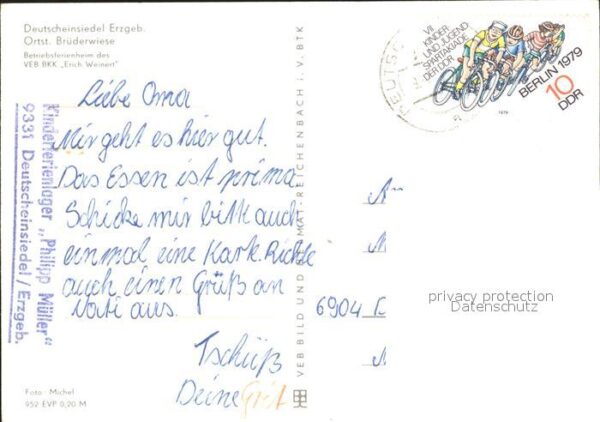 Deutscheinsiedel Erzgeb.
Ortst. Brüderwiese
Betriebsferienheim des
VEB BKK „Erich Weinert"
Liebe Oma
Mir geht es hier gut.
Das Essen ist prima.
Schicke mir bitte auch
einmal eine Karte. Richte
auch einen Grüß an
Vati aus.
Tschüß
Deine Grit
Kinderferienlager „Philipp Müller"
9331 Deutscheinsiedel / Erzgeb.
Foto: Michel
952 EVP 0,20 M
VEB BILD UND HEIMAT REICHENBACH I. V. BTK
VII.
KINDER-
UND JUGEND-
SPARTAKIADE
DER DDR
BERLIN 1979
10
DDR
1979
6904
privacy protection
Datenschutz